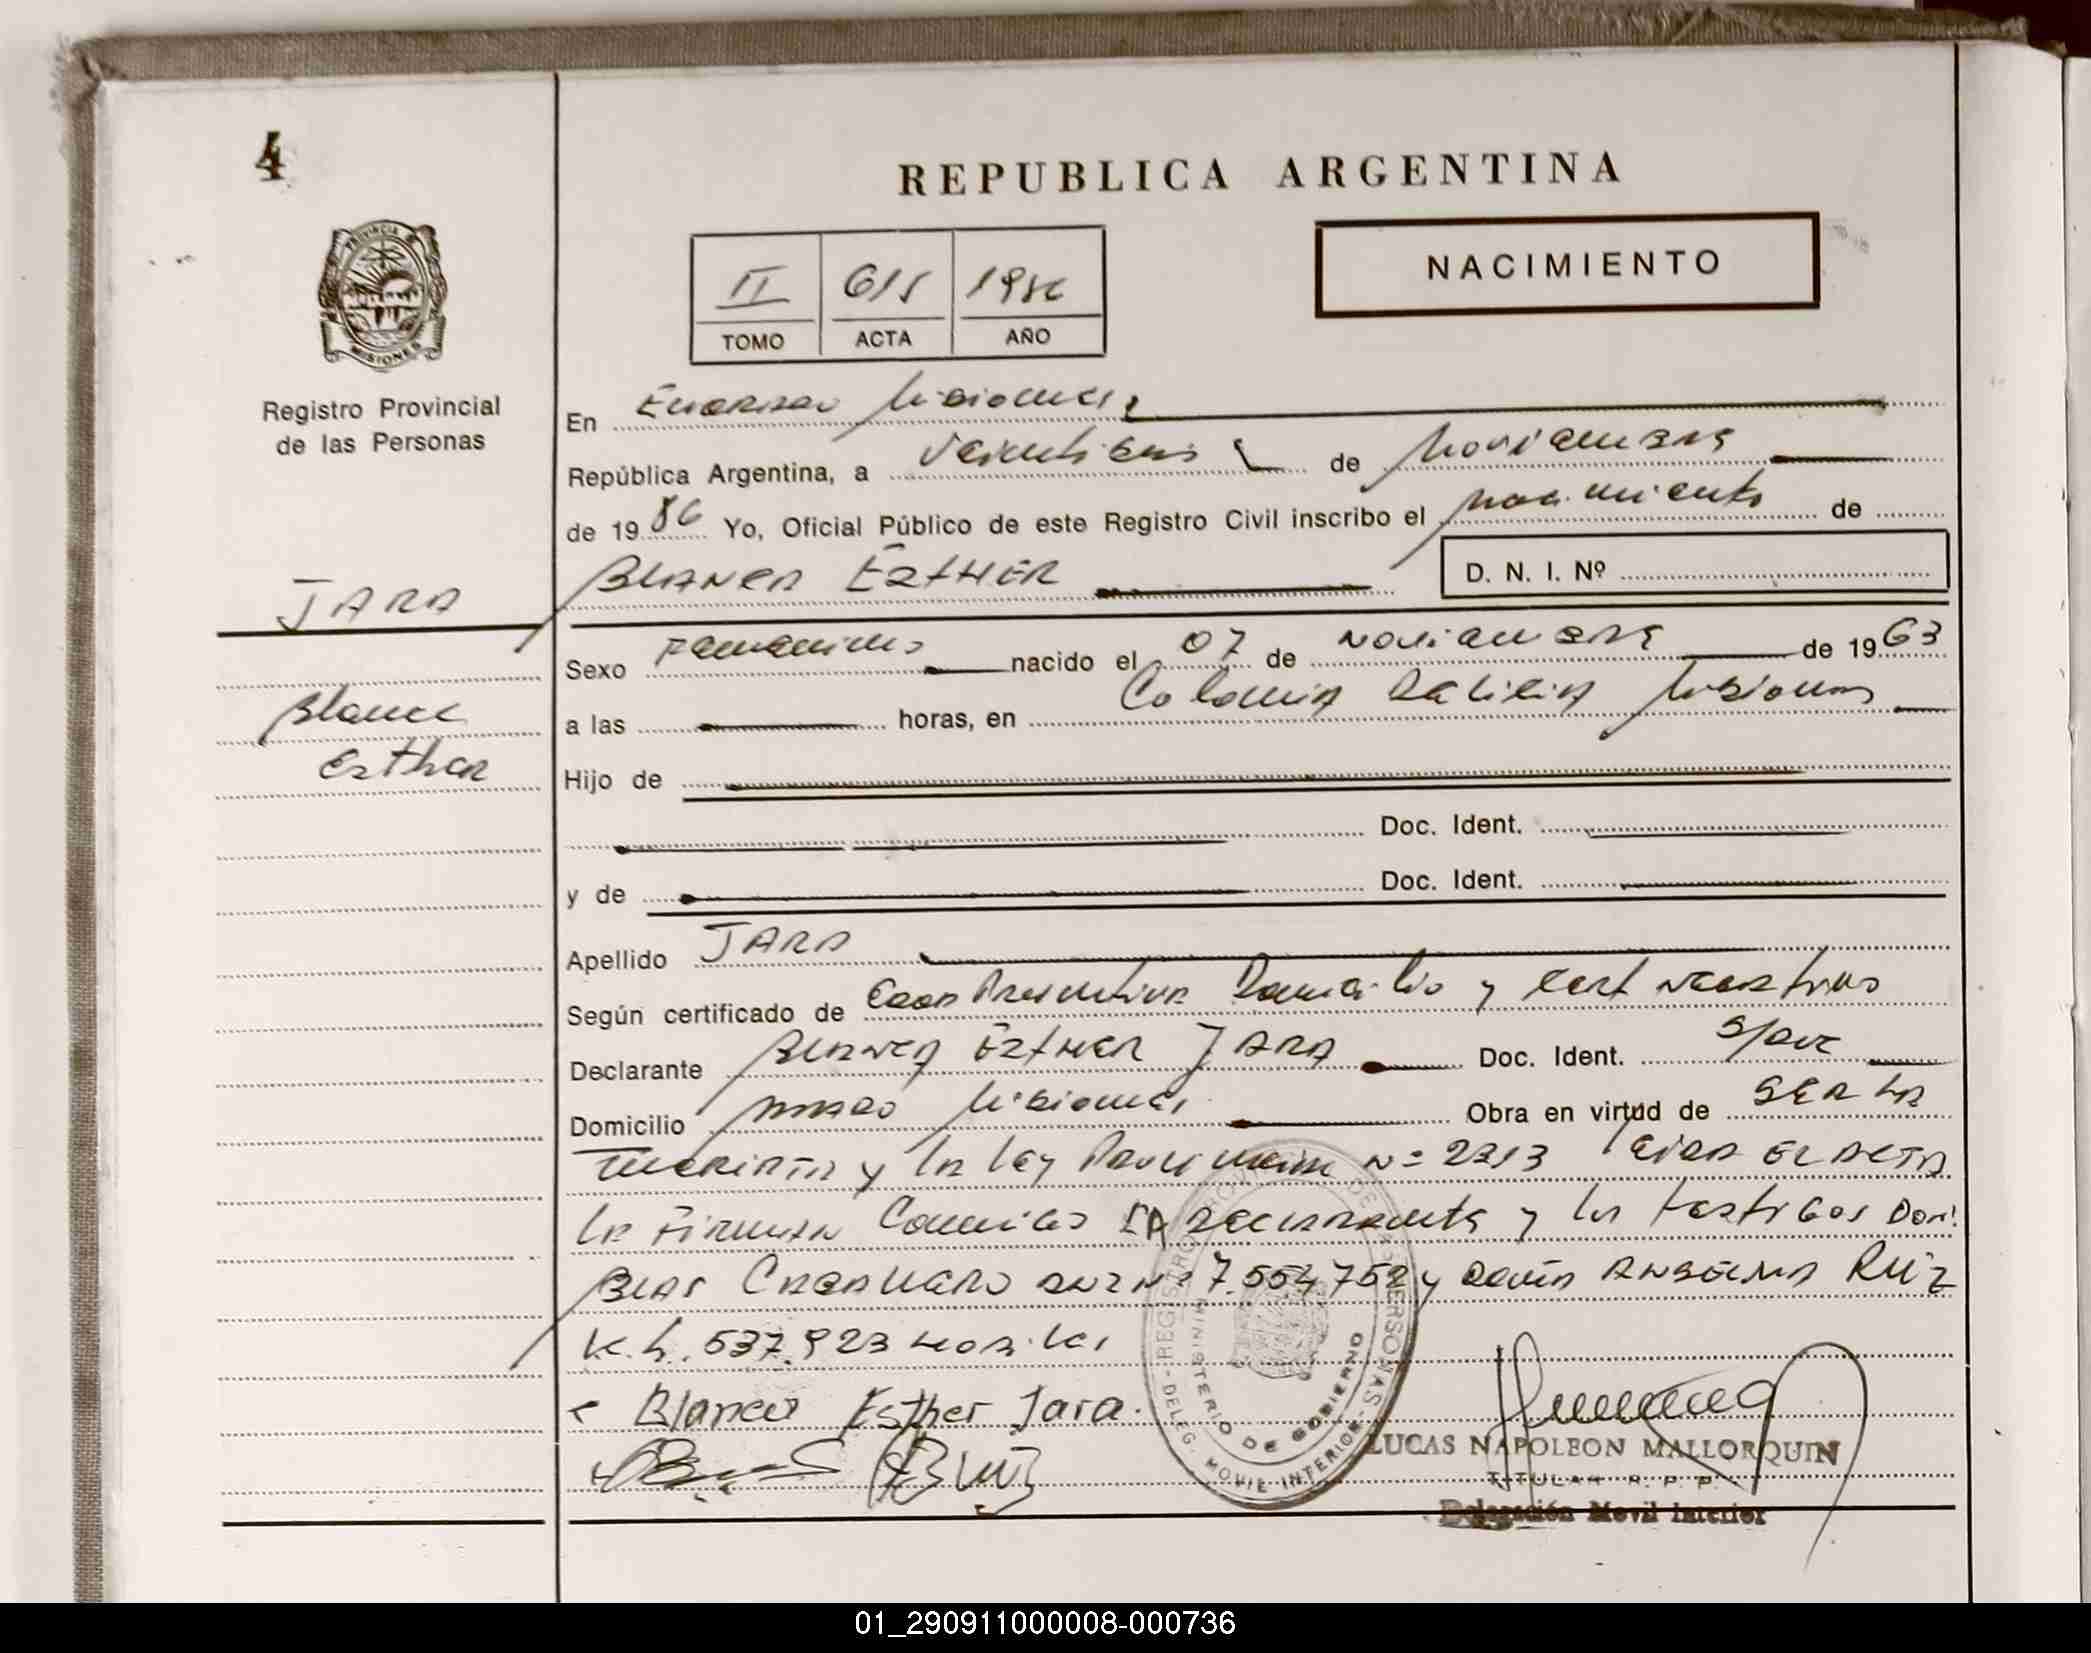 4
REPUBLICA ARGENTINA
PROVINCIA DE
MISIONES
Registro Provincial
de las Personas
NACIMIENTO
II 615 1986
TOMO ACTA AÑO
En Misiones
República Argentina, a Veintiseis de Noviembre
de 1986 Yo, Oficial Público de este Registro Civil inscribo el nacimiento de
JARA
BLANCA ESTHER D. N. I. Nº
Sexo Femenino nacido el 07 de Noviembre de 1963
Blanca
a las horas, en Colonia Delicia Misiones
Esther
Hijo de
Doc. Ident.
y de Doc. Ident.
Apellido JARA
Según certificado de Domicilio y
Declarante BLANCA ESTHER JARA Doc. Ident.
Domicilio Misiones Obra en virtud de
y la Ley Provincial Nº 2313 Leida EL ACTA
la Firman Conmigo LA Declarante y los testigos Don
BLAS CABALLERO DNI Nº 7.554.752 y Doña ANSELMA RUIZ
537.923
Blanca Esther Jara.
REGISTRO PROVINCIAL DE LAS PERSONAS - DELEG. MOVIL INTERIOR -
MINISTERIO DE GOBIERNO
LUCAS NAPOLEON MALLORQUIN
TITULAR R. P. P.
Delegación Movil Interior
01_290911000008-000736